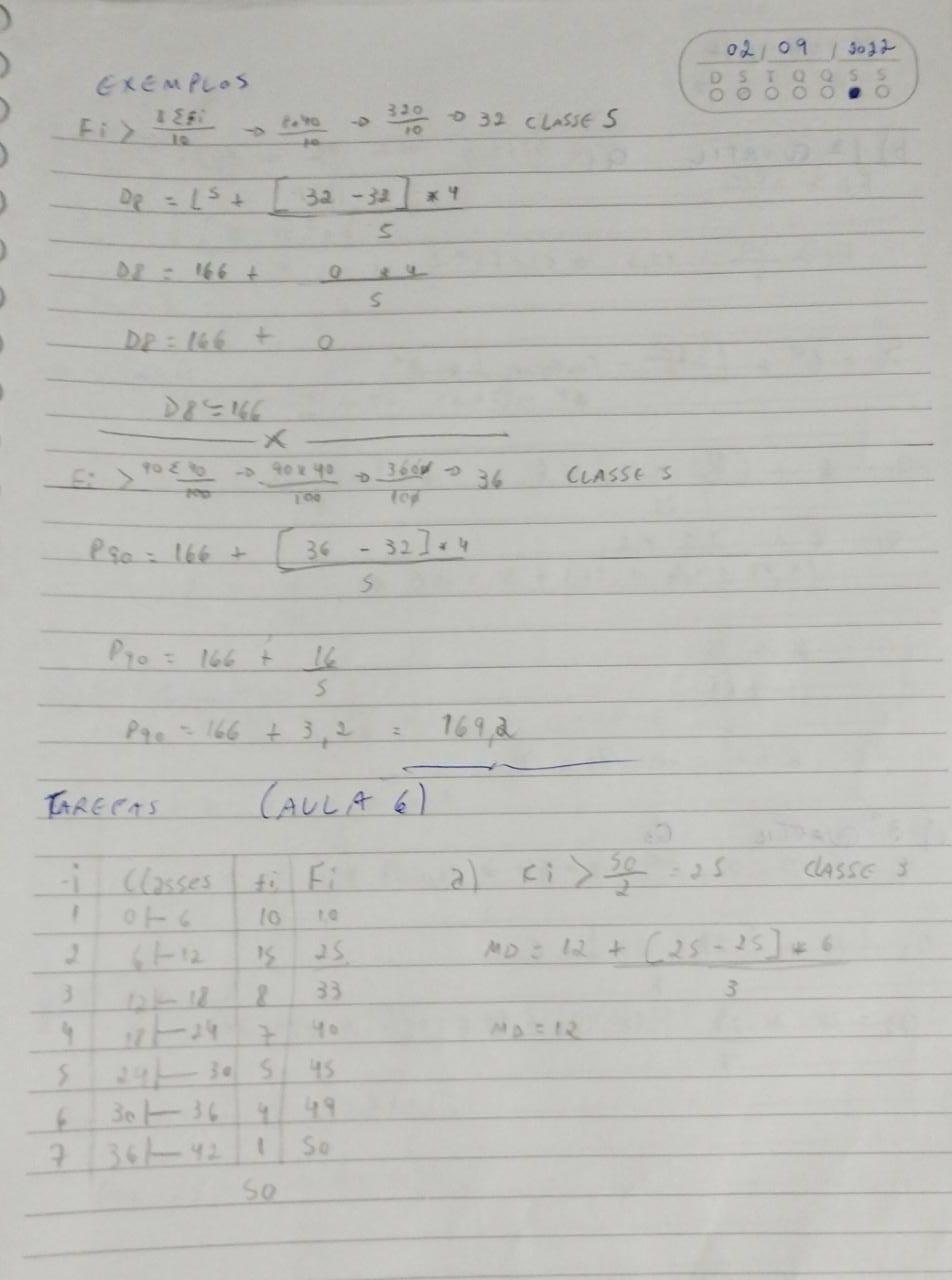 02 / 09 / 2022
D S T Q Q S S
EXEMPLOS
Fi > 8 Σfi/10 → 8.40/10 → 320/10 → 32 CLASSE 5
D8 = L5 + [32 - 32] * 4 / 5
D8 = 166 + 0 * 4 / 5
D8 = 166 + 0
D8 = 166
x
Fi > 90 Σ 40/100 → 90 x 40/100 → 3600/100 → 36 CLASSE 5
P90 = 166 + [36 - 32] * 4 / 5
P90 = 166 + 16/5
P90 = 166 + 3,2 = 169,2
TAREFAS (AULA 6)
i Classes fi Fi
1 0 ⊢ 6 10 10
2 6 ⊢ 12 15 25
3 12 ⊢ 18 8 33
4 18 ⊢ 24 7 40
5 24 ⊢ 30 5 45
6 30 ⊢ 36 4 49
7 36 ⊢ 42 1 50
50
a) Fi > 50/2 = 25 CLASSE 3
MD = 12 + [25 - 25] * 6 / 3
MD = 12